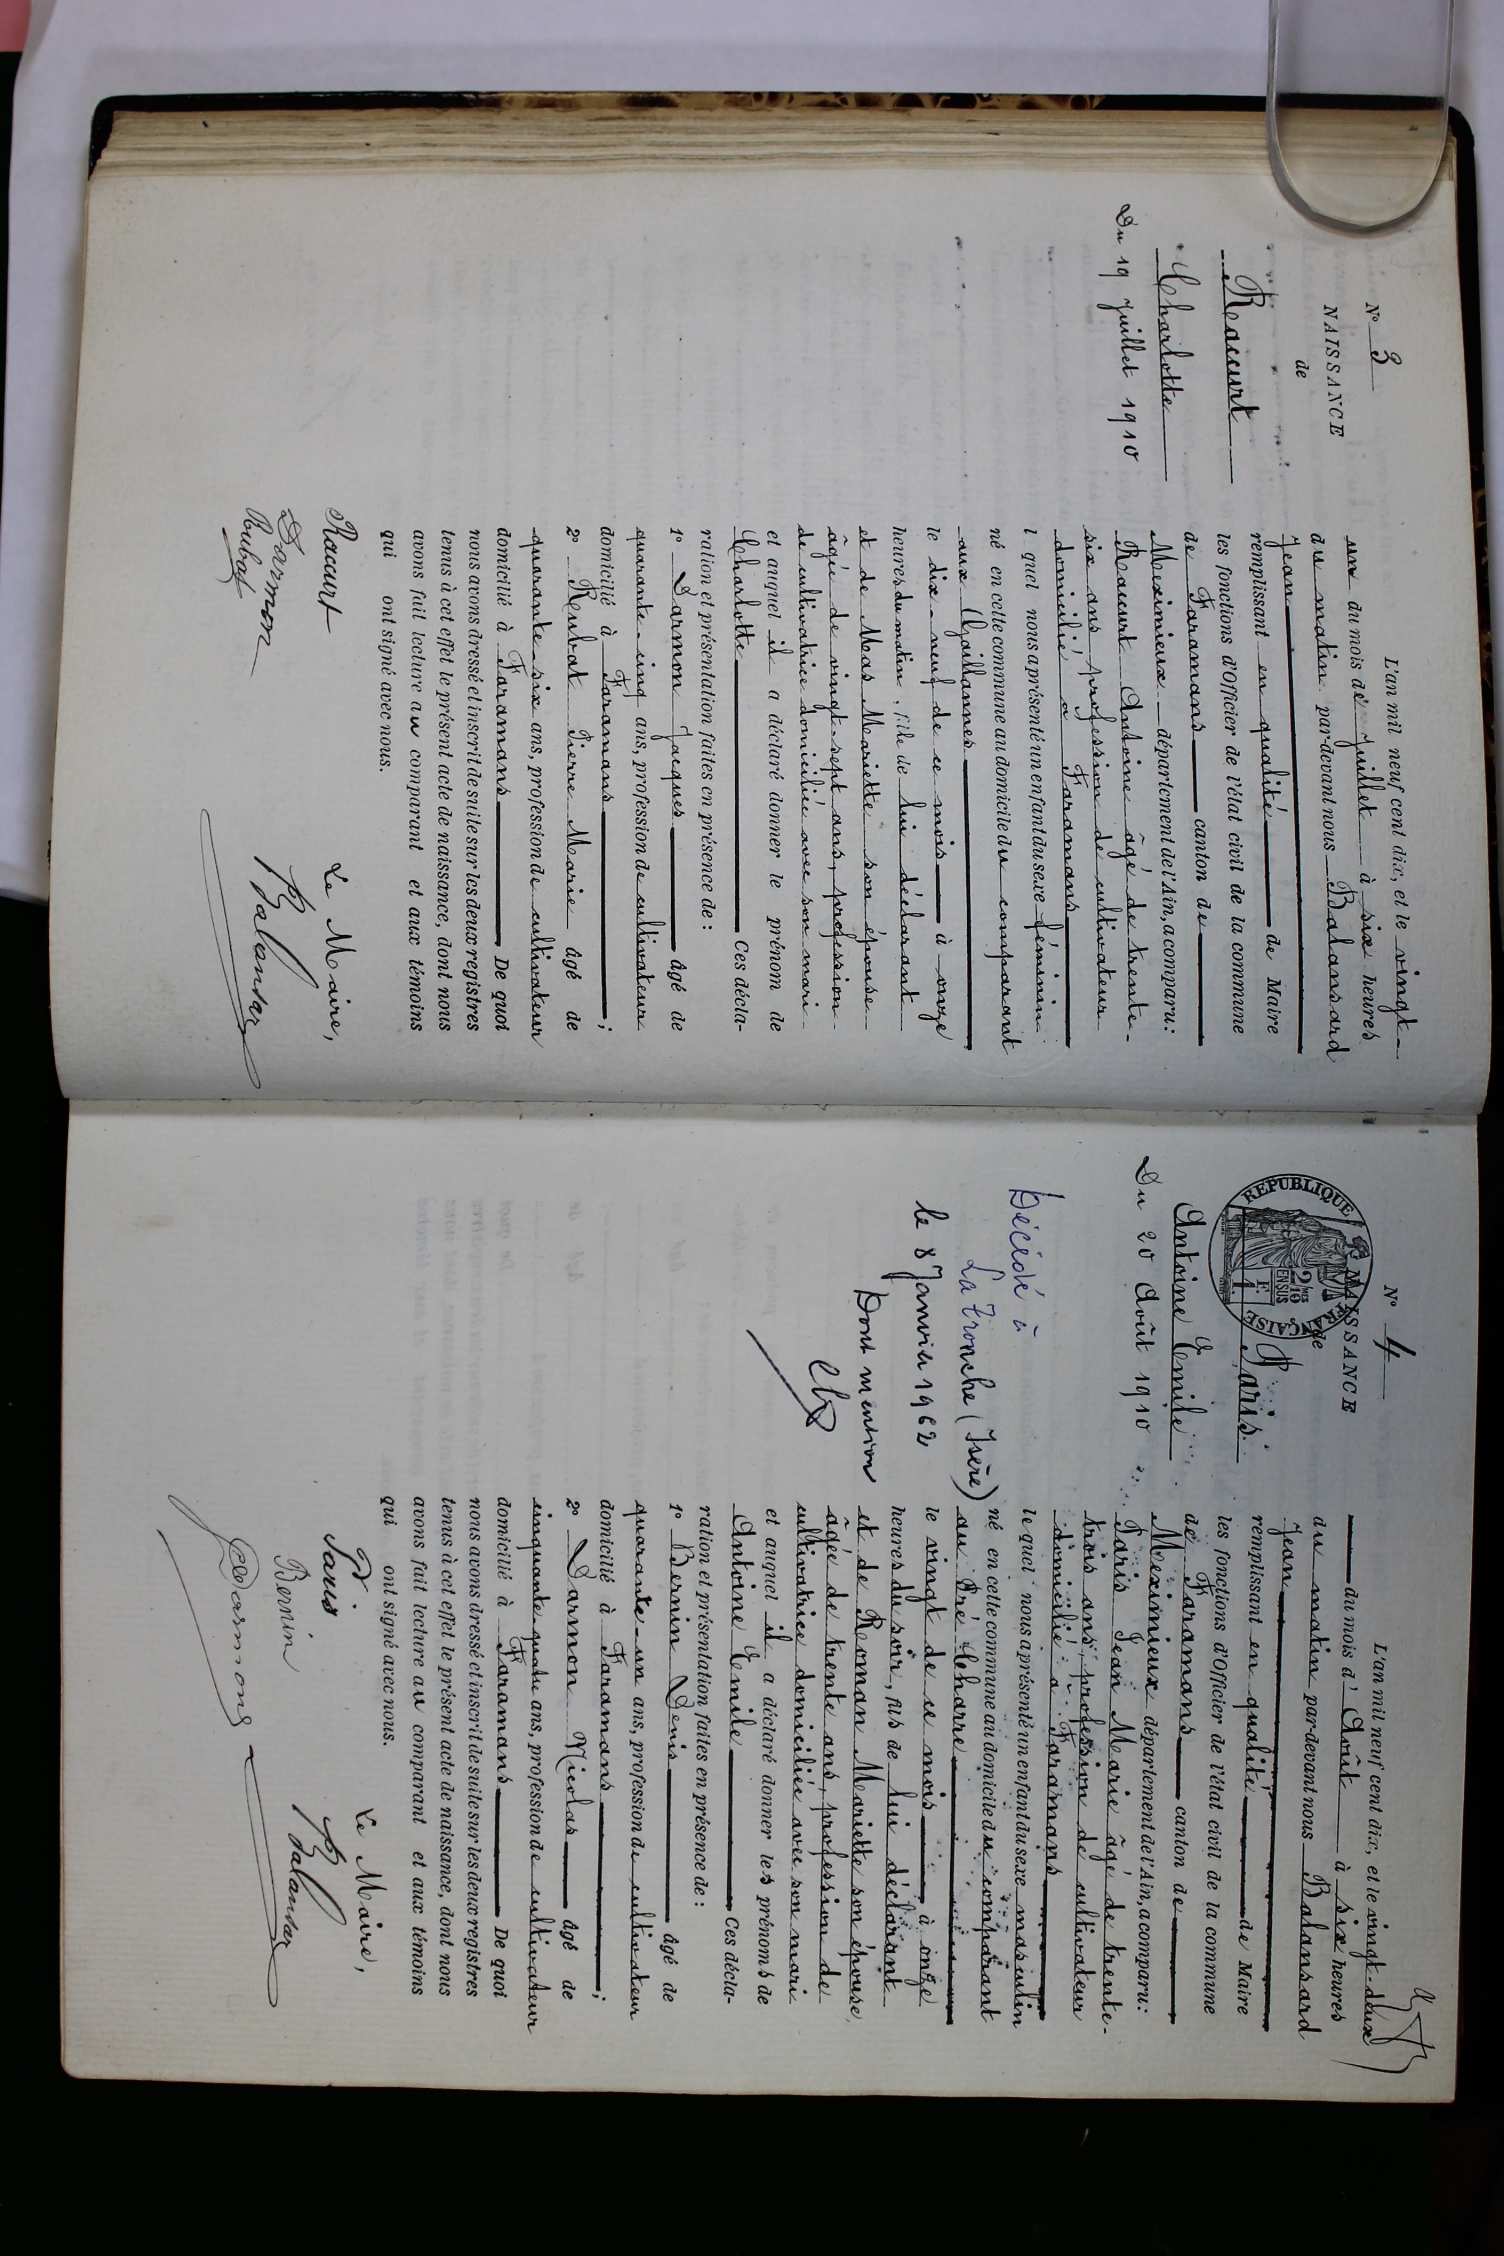 N° 3
NAISSANCE
de
Racurt
Charlotte
Du 19 Juillet 1910
L'an mil neuf cent dix, et le vingt-
un du mois de Juillet à six heures
du matin par-devant nous Balansard
Jean
remplissant en qualité de Maire
les fonctions d'Officier de l'état civil de la commune
de Faramans canton de
Meximieux département de l'Ain, a comparu:
Racurt Antoine âgé de trente-
six ans, profession de cultivateur
domicilié à Faramans
l quel nous a présenté un enfant du sexe féminin
né en cette commune au domicile du comparant
aux Gaillannes
le dix-neuf de ce mois à onze
heures du matin, fille de lui déclarant
et de Mas Mariette son épouse
âgée de vingt-sept ans, profession
de cultivatrice domiciliée avec son mari
et auquel il a déclaré donner le prénom de
Charlotte Ces décla-
ration et présentation faites en présence de :
1° Darmon Jacques âgé de
quarante-cinq ans, profession de cultivateur
domicilié à Faramans ;
2° Rubat Pierre Marie âgé de
quarante-six ans, profession de cultivateur
domicilié à Faramans De quoi
nous avons dressé et inscrit de suite sur les deux registres
tenus à cet effet le présent acte de naissance, dont nous
avons fait lecture au comparant et aux témoins
qui ont signé avec nous.
Racurt
Darmon
Rubat
Le Maire,
Balansard
N° 4
NAISSANCE
de
REPUBLIQUE FRANÇAISE
2/10 MES EN SUS
1 F.
Paris
Antoine Emile
Du 20 Août 1910
Décédé à
La Tronche (Isère)
le 8 Janvier 1962
Dont mention
L'an mil neuf cent dix, et le vingt-deux
du mois d'Août à six heures
du matin par-devant nous Balansard
Jean
remplissant en qualité de Maire
les fonctions d'Officier de l'état civil de la commune
de Faramans canton de
Meximieux département de l'Ain, a comparu:
Paris Jean Marie âgé de trente-
trois ans, profession de cultivateur
domicilié à Faramans
lequel nous a présenté un enfant du sexe masculin
né en cette commune au domicile du comparant
au Pré Charre
le vingt de ce mois à onze
heures du soir, fils de lui déclarant
et de Roman Mariette son épouse,
âgée de trente ans, profession de
cultivatrice domiciliée avec son mari
et auquel il a déclaré donner les prénoms de
Antoine Emile Ces décla-
ration et présentation faites en présence de :
1° Bernin Denis âgé de
quarante-un ans, profession de cultivateur
domicilié à Faramans ;
2° Darmon Nicolas âgé de
cinquante-quatre ans, profession de cultivateur
domicilié à Faramans De quoi
nous avons dressé et inscrit de suite sur les deux registres
tenus à cet effet le présent acte de naissance, dont nous
avons fait lecture au comparant et aux témoins
qui ont signé avec nous.
Paris
Bernin
Darmon
Le Maire,
Balansard